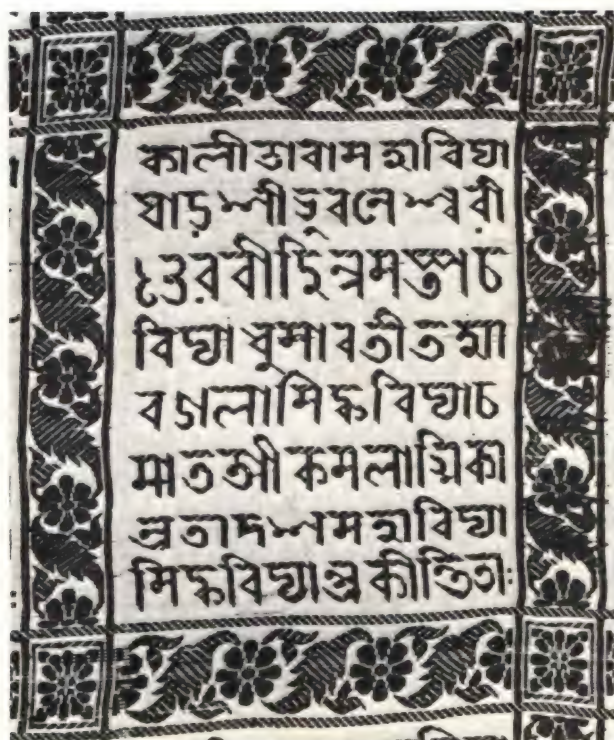 কালীতারামহাবিদ্যা
ষাড়শীভুবনেশ্বরী
ভৈরবীছিন্নমস্তাচ
বিদ্যাধুমাবতীতথা
বগলাসিদ্ধবিদ্যাচ
মাতঙ্গীকমলাত্মিকা
এতাদশমহাবিদ্যা
সিদ্ধবিদ্যাপ্রকীর্ত্তিতাঃ